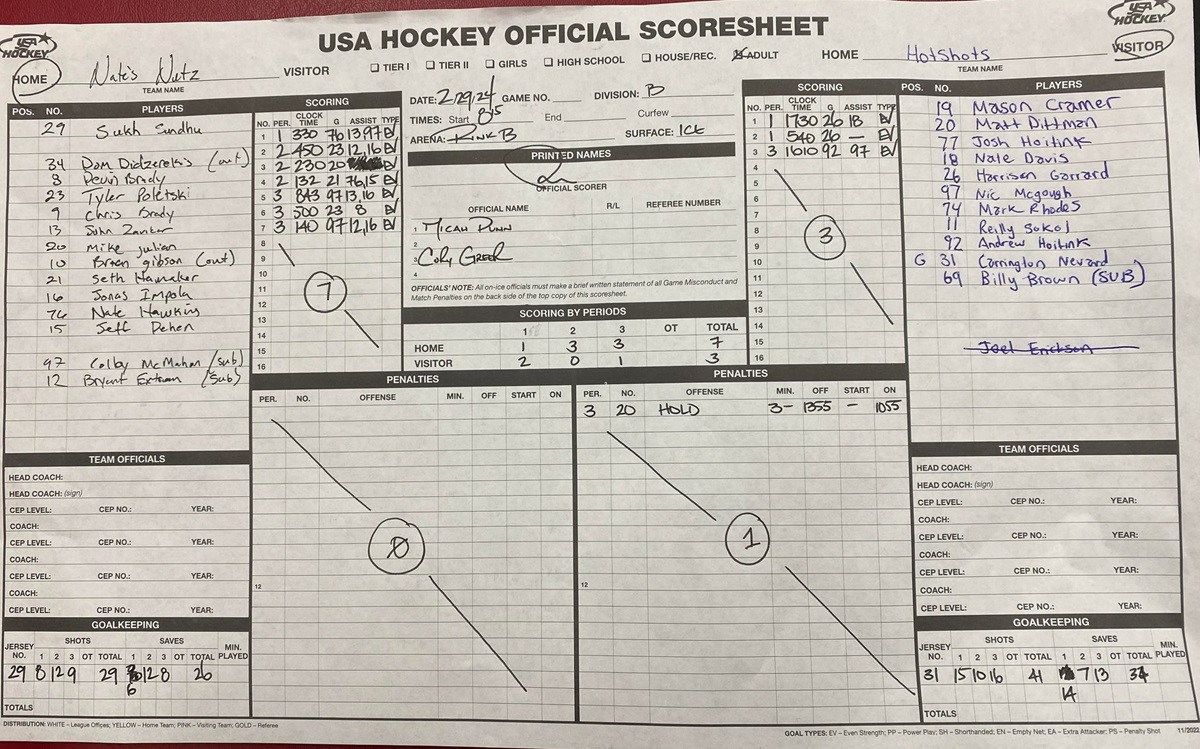 USA HOCKEY
USA HOCKEY OFFICIAL SCORESHEET
USA HOCKEY
HOME Nate's Nutz VISITOR
TEAM NAME
TIER I TIER II GIRLS HIGH SCHOOL HOUSE/REC. ADULT
HOME HotShots VISITOR
TEAM NAME
POS. NO. PLAYERS
29 Sukh Sundhu
34 Dom Didzerekis (out)
8 Devin Brady
23 Tyler Poletski
9 Chris Brady
13 John Zanker
20 Mike Julian
10 Brian Gibson (out)
21 Seth Hamaker
16 Jonas Impola
76 Nate Hawkins
15 Jeff Dehen
97 Colby McMahan (sub)
12 Bryant Extrom (sub)
SCORING
NO. PER. CLOCK TIME G ASSIST TYPE
1 1 330 76 13,97 EV
2 2 450 23 12,16 EV
3 2 230 20 EV
4 2 132 21 76,15 EV
5 3 843 97 13,16 EV
6 3 500 23 8 EV
7 3 140 97 12,16 EV
8
9
10
11
12
13
14
15
16
7
DATE: 2/29/24 GAME NO. DIVISION: B
TIMES: Start 815 End Curfew
ARENA: RINK B SURFACE: ICE
PRINTED NAMES
OFFICIAL SCORER
OFFICIAL NAME R/L REFEREE NUMBER
1 MICAH DUNN
2
3 CORY GREER
4
OFFICIALS' NOTE: All on-ice officials must make a brief written statement of all Game Misconduct and
Match Penalties on the back side of the top copy of this scoresheet.
SCORING BY PERIODS
1 2 3 OT TOTAL
HOME 1 3 3 7
VISITOR 2 0 1 3
SCORING
NO. PER. CLOCK TIME G ASSIST TYPE
1 1 1730 26 18 EV
2 1 540 26 — EV
3 3 1610 92 97 EV
4
5
6
7
8
9
10
11
12
13
14
15
16
3
POS. NO. PLAYERS
19 Mason Cramer
20 Matt Dittman
77 Josh Hoitink
18 Nate Davis
26 Harrison Garrard
97 Nic Mcgough
74 Mark Rhodes
11 Reilly Sokol
92 Andrew Hoitink
G 31 Carrington Nevard
69 Billy Brown (SUB)
Joel Erickson
PENALTIES
PER. NO. OFFENSE MIN. OFF START ON
12
0
PENALTIES
PER. NO. OFFENSE MIN. OFF START ON
3 20 HOLD 3- 1355 - 1055
12
1
TEAM OFFICIALS
HEAD COACH:
HEAD COACH: (sign)
CEP LEVEL: CEP NO.: YEAR:
COACH:
CEP LEVEL: CEP NO.: YEAR:
COACH:
CEP LEVEL: CEP NO.: YEAR:
COACH:
CEP LEVEL: CEP NO.: YEAR:
GOALKEEPING
SHOTS SAVES
JERSEY NO. 1 2 3 OT TOTAL 1 2 3 OT TOTAL MIN. PLAYED
29 8 12 9 29 6 12 8 26
TOTALS
TEAM OFFICIALS
HEAD COACH:
HEAD COACH: (sign)
CEP LEVEL: CEP NO.: YEAR:
COACH:
CEP LEVEL: CEP NO.: YEAR:
COACH:
CEP LEVEL: CEP NO.: YEAR:
COACH:
CEP LEVEL: CEP NO.: YEAR:
GOALKEEPING
SHOTS SAVES
JERSEY NO. 1 2 3 OT TOTAL 1 2 3 OT TOTAL MIN. PLAYED
31 15 10 16 41 14 7 13 34
TOTALS
DISTRIBUTION: WHITE – League Offices; YELLOW – Home Team; PINK – Visiting Team; GOLD – Referee
GOAL TYPES: EV – Even Strength; PP – Power Play; SH – Shorthanded; EN – Empty Net; EA – Extra Attacker; PS – Penalty Shot